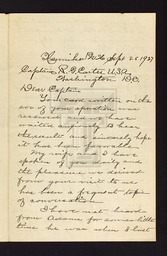 Sept 25 1927
Captain R. G. Carter U.S.A.
Washington D.C.
Dear Captain
Your card written on the
eve of your operation was
received and we have
waited anxiously to hear
the result and sincerely hope
it has been favorable.
My wife and I have
spoken of you daily and
the pleasure we derived
from your visit to us
has been a frequent topic
of conversation.
I have not heard
from
since he was when I last